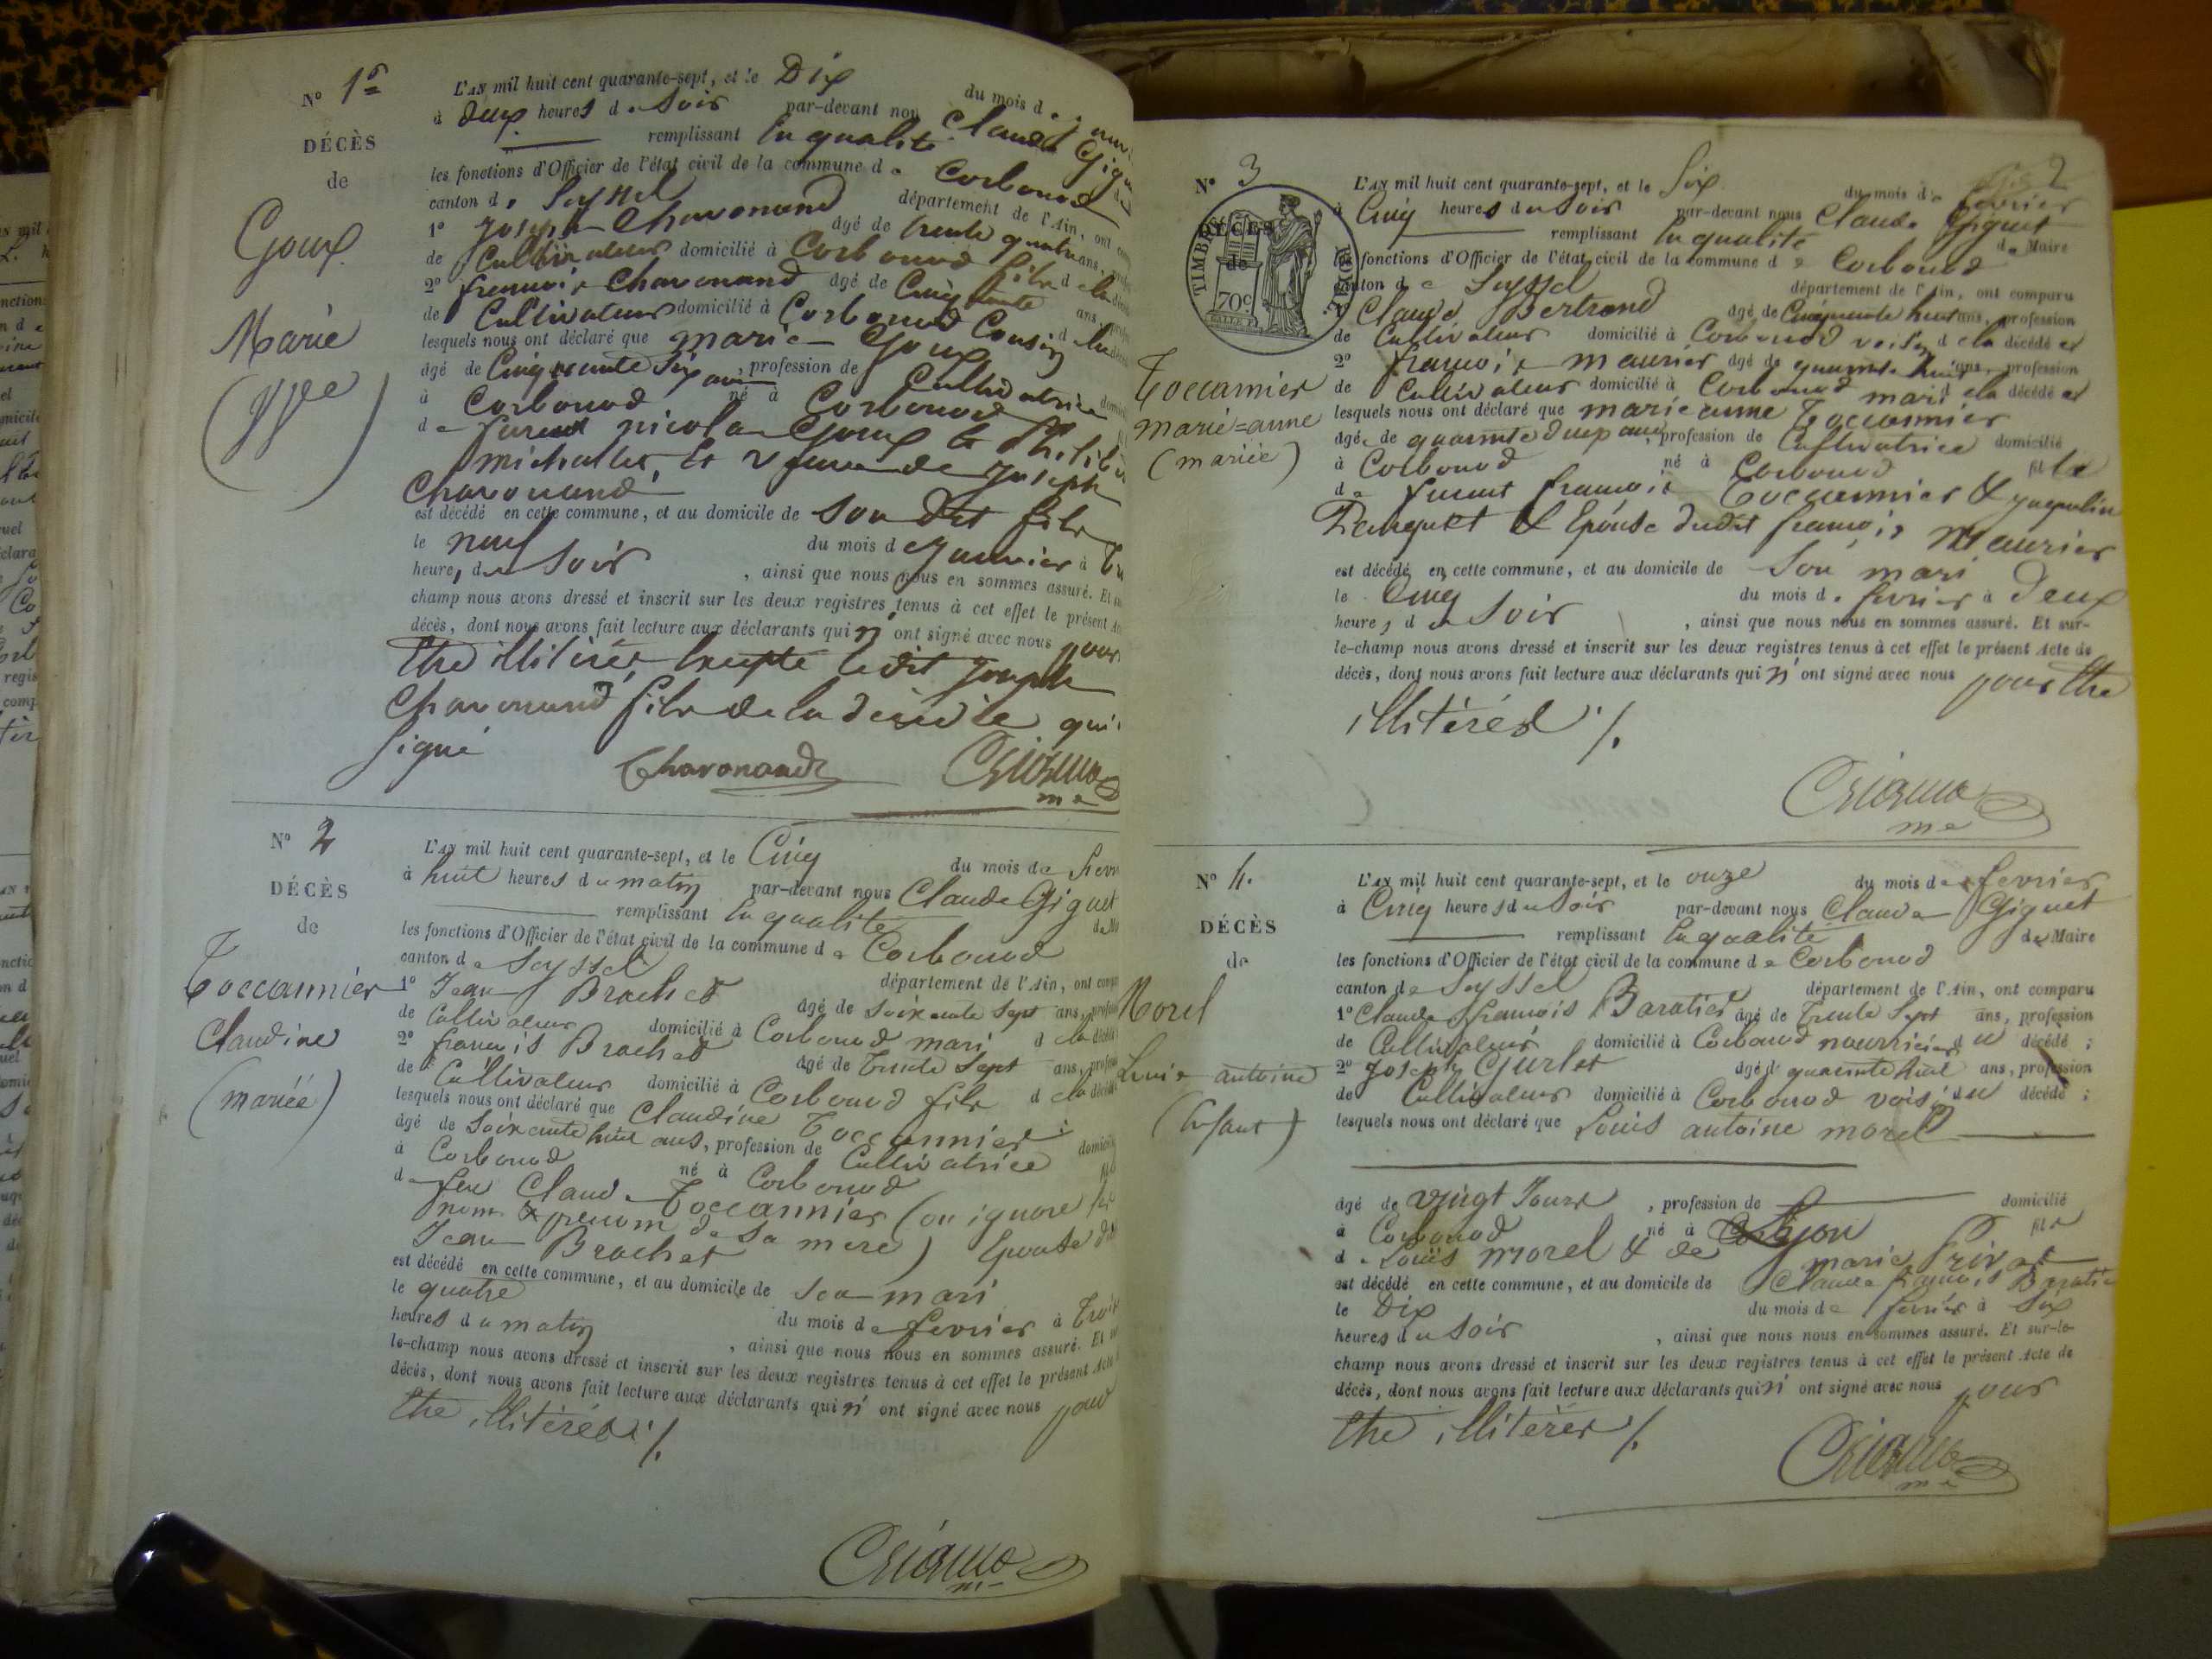 N° 1er
DÉCÈS
de
Goux
Marie
(Vve)
L'AN mil huit cent quarante-sept, et le Dix du mois de
à deux heures du soir par-devant nou Claude
remplissant En qualité
les fonctions d'Officier de l'état civil de la commune de Corbonod
canton de Seyssel département de l'Ain, ont
1° Joseph Chavonand âgé de trente quatre ans,
de Cultivateur domicilié à Corbonod fils de la
2° francois Chavonand âgé de Cinquante ans,
de Cultivateur domicilié à Corbonod Cousin de la
lesquels nous ont déclaré que marie Goux
âgé de Cinquante six ans, profession de Cultivatrice
à Corbonod né à Corbonod
de furent nicolas Goux &
michallet, & veuve de Joseph
Chavonand
est décédé en cette commune, et au domicile de son dit fils
le neuf du mois de Janvier à
heures du soir, ainsi que nous nous en sommes assuré. Et
champ nous avons dressé et inscrit sur les deux registres tenus à cet effet le présent
décès, dont nous avons fait lecture aux déclarants qui n' ont signé avec nous pour
être illitérés Excepté le dit Joseph
Chavonand fils de la décédée qui
signé
Chavonand
me
N° 2
DÉCÈS
de
Toccannier
Claudine
(mariée)
L'AN mil huit cent quarante-sept, et le Cinq du mois de
à huit heures du matin par-devant nous Claude Giguet
remplissant En qualité
les fonctions d'Officier de l'état civil de la commune de Corbonod
canton de Seyssel département de l'Ain, ont
1° Jean Brachet âgé de soixante sept ans,
de Cultivateur domicilié à Corbonod mari de la
2° francois Brachet âgé de trente sept ans,
de Cultivateur domicilié à Corbonod fils de la
lesquels nous ont déclaré que Claudine Toccannier
âgé de soixante huit ans, profession de Cultivatrice
à Corbonod né à Corbonod
de feu Claude Toccannier (on ignore les
nom & prenom de sa mere) Epouse
Jean Brachet
est décédé en cette commune, et au domicile de son mari
le quatre du mois de fevrier à trois
heures du matin, ainsi que nous nous en sommes assuré. Et
le-champ nous avons dressé et inscrit sur les deux registres tenus à cet effet le présent Acte
décès, dont nous avons fait lecture aux déclarants qui n' ont signé avec nous pour
être illitérés ./.
me
2
N° 3
DÉCÈS
de
TIMBRE ROYAL
70c
Toccannier
marie=anne
(mariée)
L'AN mil huit cent quarante-sept, et le Six du mois de fevrier
à Cinq heures du soir par-devant nous Claude Giguet
remplissant En qualité de Maire
fonctions d'Officier de l'état civil de la commune de Corbonod
canton de Seyssel département de l'Ain, ont comparu
Claude Bertrand âgé de Cinquante huit ans, profession
de Cultivateur domicilié à Corbonod voisin de la décédé et
2° francois meurier âgé de quarante huit ans, profession
de Cultivateur domicilié à Corbonod mari de la décédé et
lesquels nous ont déclaré que marie anne Toccannier
âgé de quarante deux ans, profession de Cultivatrice domicilié
à Corbonod né à Corbonod fille
de furent francois Toccannier & jaqueline
& Epouse dudit francois Meurier
est décédé en cette commune, et au domicile de son mari
le Cinq du mois de fevrier à Deux
heures du soir, ainsi que nous nous en sommes assuré. Et sur-
le-champ nous avons dressé et inscrit sur les deux registres tenus à cet effet le présent Acte de
décès, dont nous avons fait lecture aux déclarants qui n' ont signé avec nous pour être
illitérés ./.
me
N° 4.
DÉCÈS
de
Morel
Louis antoine
(Enfant)
L'AN mil huit cent quarante-sept, et le onze du mois de fevrier
à Cinq heures du soir par-devant nous Claude Giguet
remplissant En qualité de Maire
les fonctions d'Officier de l'état civil de la commune de Corbonod
canton de Seyssel département de l'Ain, ont comparu
1° Claude francois Baratier âgé de trente sept ans, profession
de Cultivateur domicilié à Corbonod nourricier du décédé ;
2° Joseph Gurlet âgé de quarante huit ans, profession
de Cultivateur domicilié à Corbonod voisin du décédé ;
lesquels nous ont déclaré que Louis antoine morel
âgé de vingt Jours, profession de domicilié
à Corbonod né à Lyon fils
de Louis morel & de marie Privat
est décédé en cette commune, et au domicile de Claude francois Baratier
le Dix du mois de fevrier à Six
heures du soir, ainsi que nous nous en sommes assuré. Et sur-le-
champ nous avons dressé et inscrit sur les deux registres tenus à cet effet le présent Acte de
décès, dont nous avons fait lecture aux déclarants qui n' ont signé avec nous pour
être illitérés ./.
me